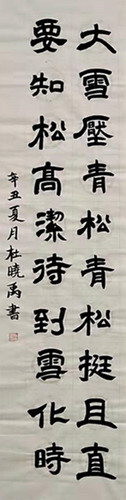 大雪壓青松青松挺且直
要知松高潔待到雪化時
辛丑夏月杜曉禹書